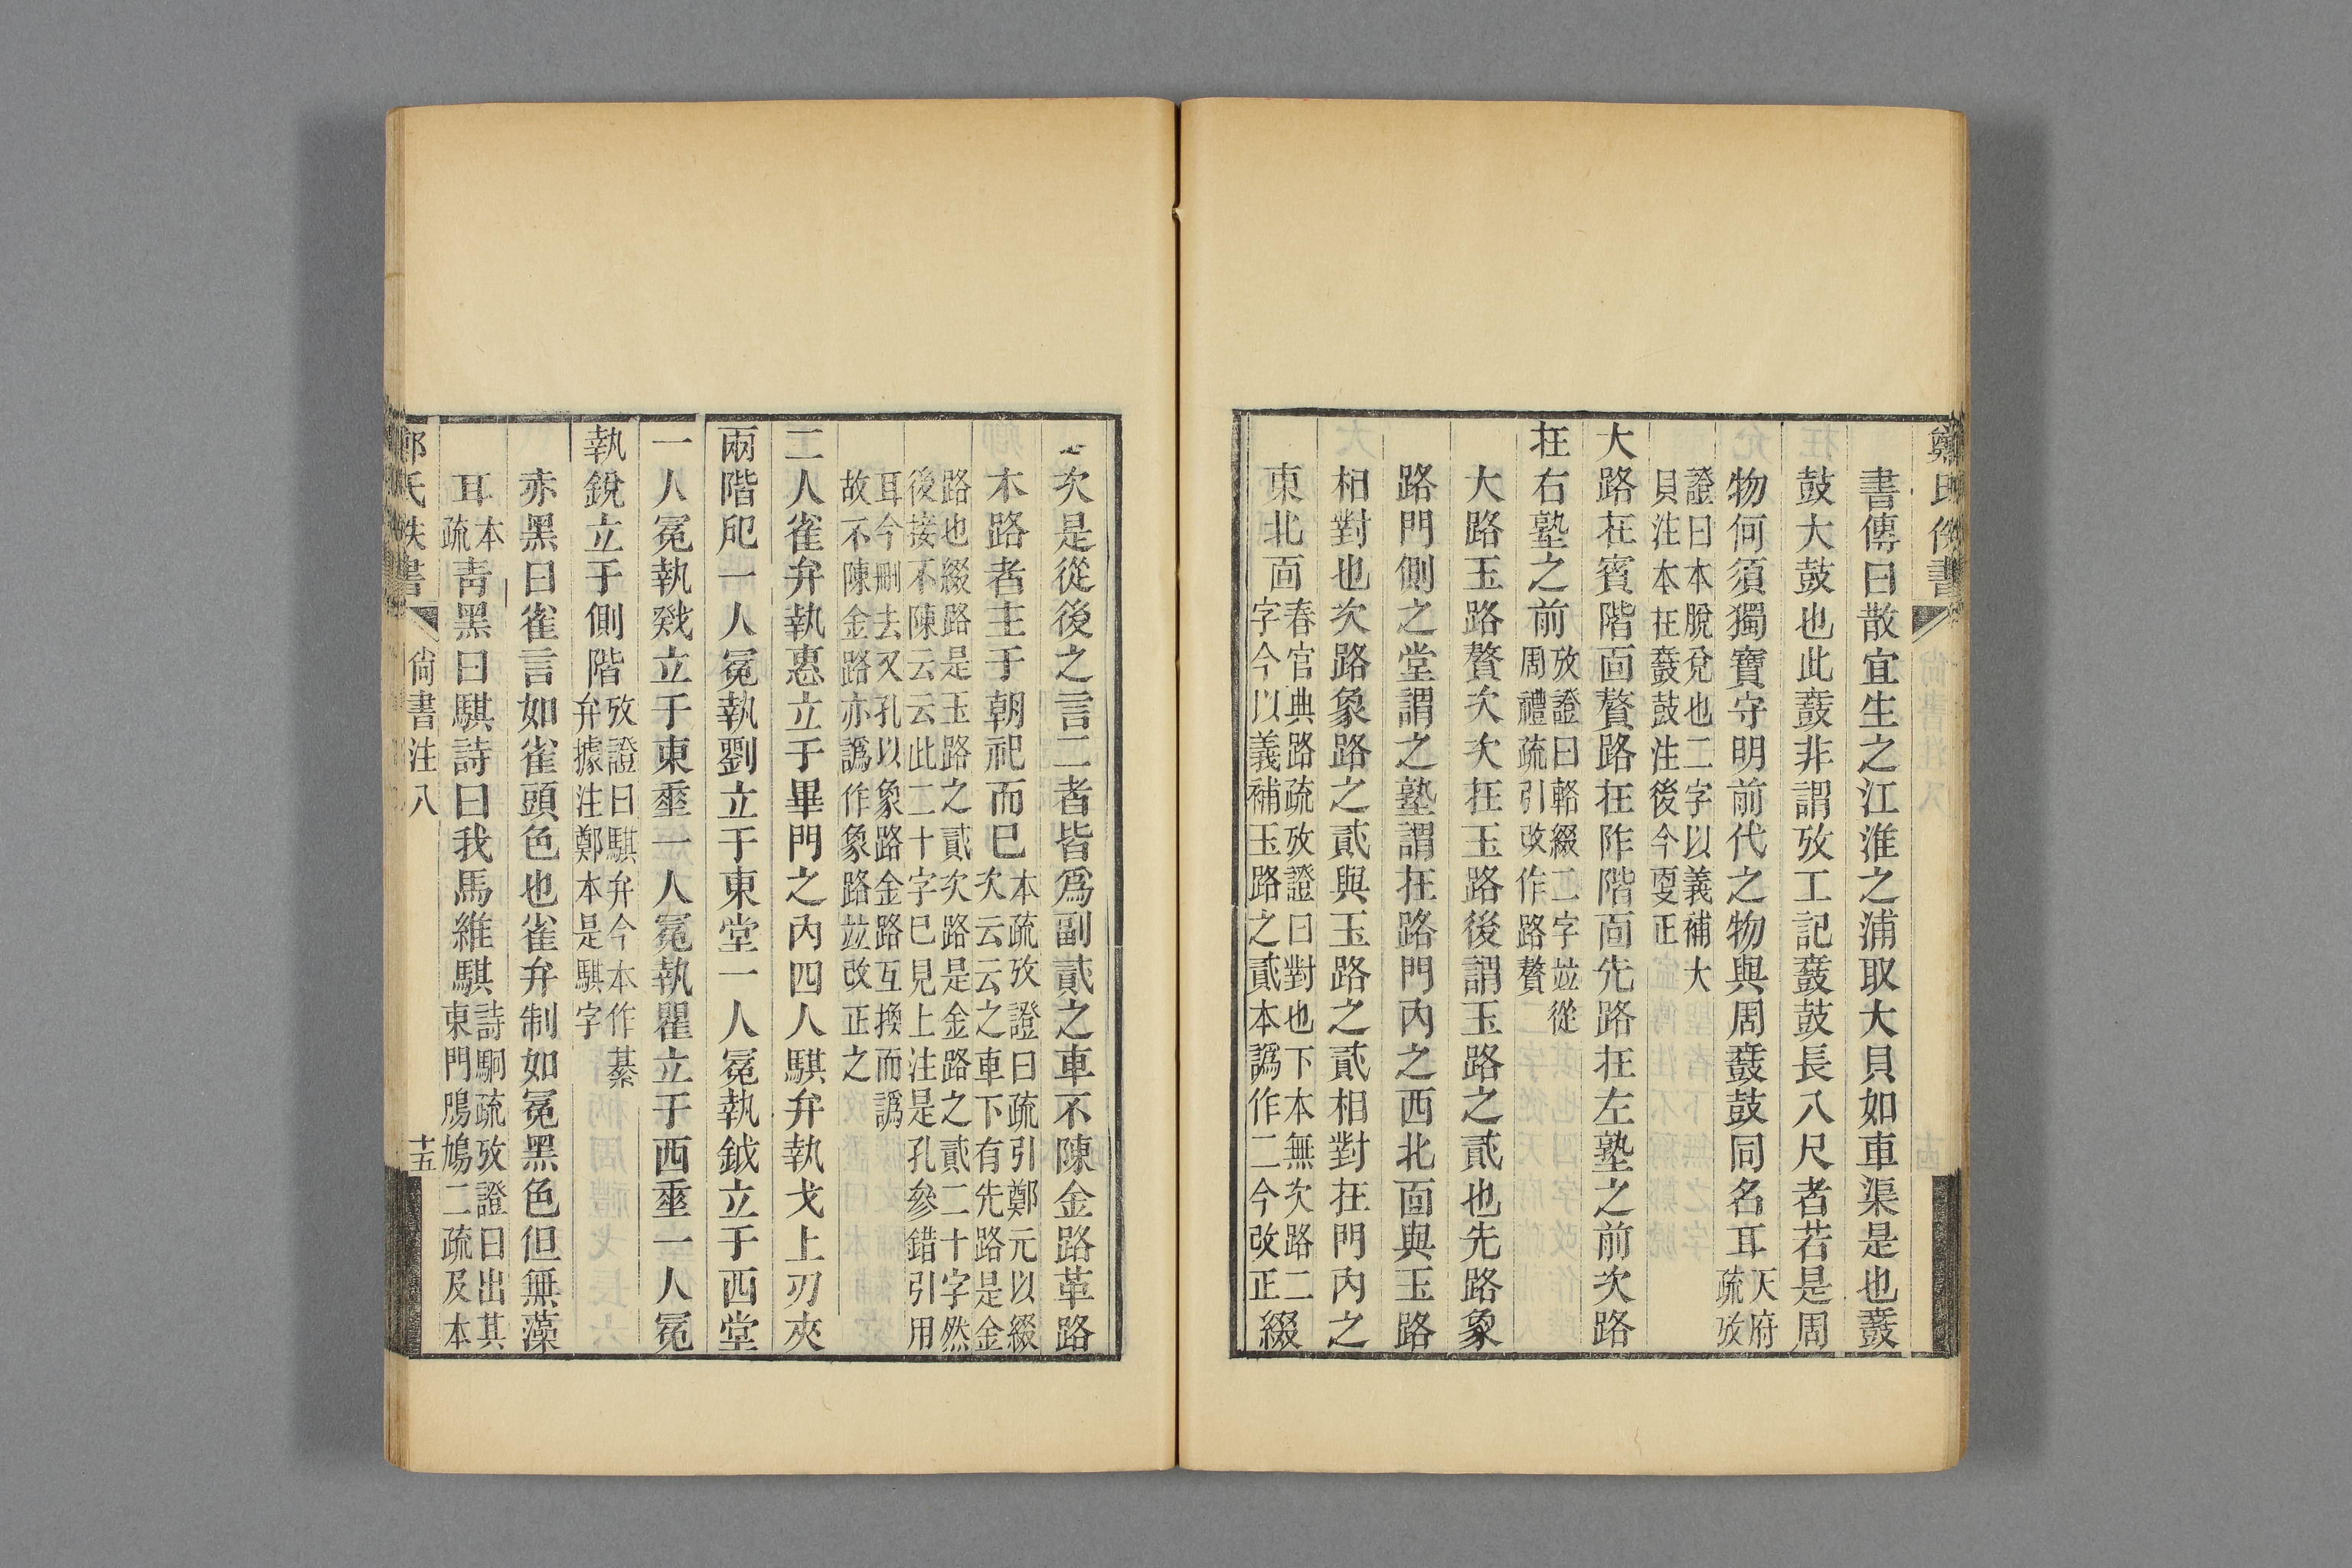 鄭氏佚書
書傳曰散宜生之江淮之浦取大貝如車渠是也鼖
鼓大鼓也此鼖非謂攷工記鼖鼓長八尺者若是周
物何須獨寶守明前代之物與周鼖鼓同名耳天府疏攷
證曰本脫兌也二字以義補大貝注本在鼖鼓注後今更正
大路在賓階面贅路在阼階面先路在左塾之前次路
在右塾之前攷證曰輅綴二字竝從周禮疏引改作路贅
大路玉路贅次次在玉路後謂玉路之貳也先路象
路門側之堂謂之塾謂在路門內之西北面與玉路
相對也次路象路之貳與玉路之貳相對在門內之
東北面春官典路疏攷證曰對也下本無次路二字今以義補玉路之貳本譌作二今改正綴
次是從後之言二者皆爲副貳之車不陳金路革路
木路者主于朝祀而巳本疏攷證曰疏引鄭元以綴次云云之車下有先路是金
路也綴路是玉路之貳次路是金路之貳二十字然後接不陳云云此二十字巳見上注是孔參錯引用
耳今刪去又孔以象路金路互換而譌故不陳金路亦譌作象路竝改正之
二人雀弁執惠立于畢門之內四人騏弁執戈上刃夾
兩階戺一人冕執劉立于東堂一人冕執鉞立于西堂
一人冕執戣立于東垂一人冕執瞿立于西垂一人冕
執銳立于側階攷證曰騏弁今本作綦弁據注鄭本是騏字
赤黑曰雀言如雀頭色也雀弁制如冕黑色但無藻
耳本疏青黑曰騏詩曰我馬維騏詩駉疏攷證曰出其東門鳲鳩二疏及本
鄭氏佚書
尙書注八
十五